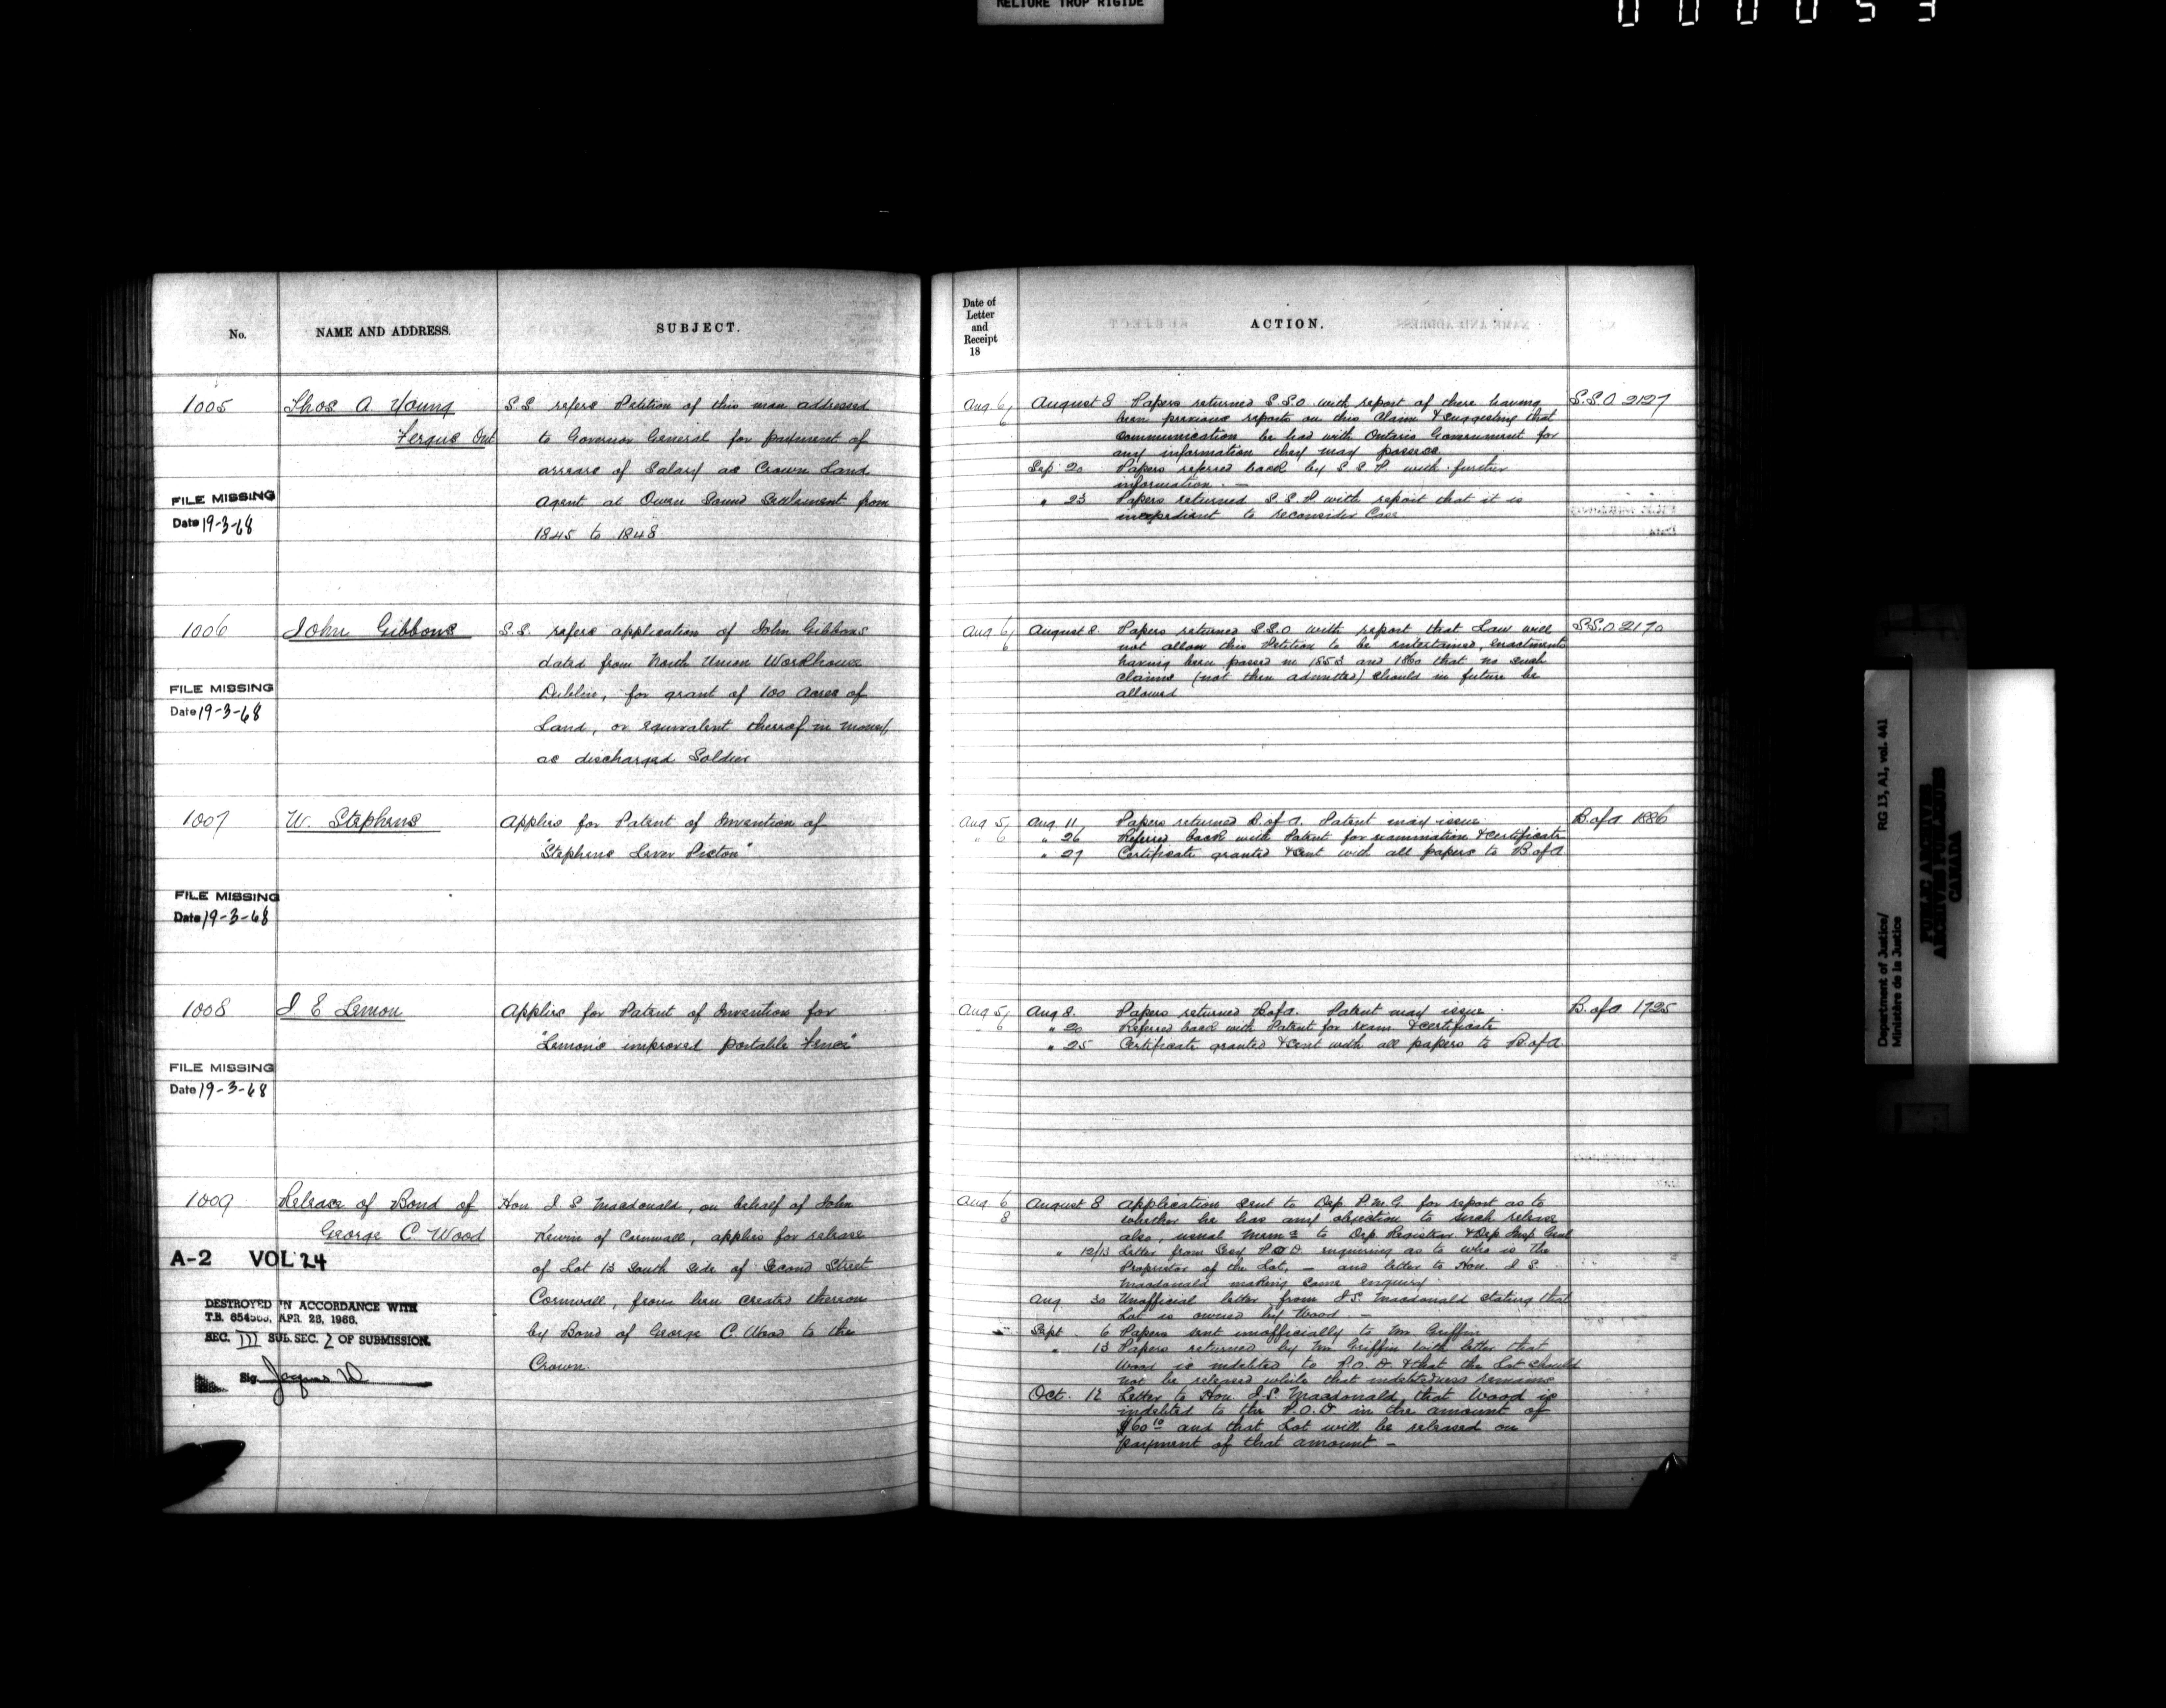 RELIURE TROP RIGIDE
000053
No.
NAME AND ADDRESS.
SUBJECT.
1005
Thos A. Young
Fergus Ont
S.S. refers Petition of this man addressed
to Governor General for payment of
arrears of Salary as Crown Land
Agent at Owen Sound Settlement from
1845 to 1848
FILE MISSING
Date 19-3-68
1006
John Gibbons
S.S. refers application of John Gibbons
dated from North Union Workhouse
Dublin, for grant of 100 Acres of
Land, or equivalent thereof in money,
as discharged Soldier
FILE MISSING
Date 19-3-68
1007
W. Stephens
Applies for Patent of Invention of
"Stephens Lever Piston"
FILE MISSING
Date 19-3-68
1008
J. E Lemon
Applies for Patent of Invention for
"Lemon's improved portable Fence"
FILE MISSING
Date 19-3-68
1009
Release of Bond of
George C Wood
Hon J. S Macdonald, on behalf of John
of Cornwall, applies for release
of Lot 13 South Side of Second Street
Cornwall, from lien created thereon
by Bond of George C. Wood to the
Crown.
A-2 VOL 24
DESTROYED IN ACCORDANCE WITH
T.B. APR. 28, 1966.
SEC. III SUB. SEC. 2 OF SUBMISSION.
Sig.
Date of
Letter
and
Receipt
18
ACTION.
Aug 6/6
August 8 Papers returned S.S.O with report of there having
been previous reports on this Claim & suggesting that
communication be had with Ontario Government for
any information they may possess
S.S.O 2127
Sep 20 Papers referred back by S.S.P. with further
information. —
" 23 Papers returned S.S.P with report that it is
inexpedient to reconsider Case
Aug 6/6
August 8. Papers returned S.S.O with report that Law will
not allow this Petition to be entertained, enactments
having been passed in 1853 and 1860 that no such
claims (not then admitted) should in future be
allowed
S.S.O 2170
Aug 5
" 6
Aug 11 Papers returned B. of A. Patent may issue
" 26 Referred back with Patent for examination & certificate
" 27 Certificate granted & sent with all papers to B. of A
B. of A 1886
Aug 5/6
Aug 8. Papers returned B of A. Patent may issue
" 20 Referred back with Patent for exam & certificate
" 25 Certificate granted & sent with all papers to B. of A
B. of A 1725
Aug 6
8
August 8 Application sent to Dep P.M.G. for report as to
whether he has any objection to such release
also, usual Mem to Dep Registrar & Dep Insp Genl
" 12/13 Letter from Secy P.O.D. enquiring as to who is the
Proprietor of the Lot, — and letter to Hon. J. S.
Macdonald making same enquiry.
Aug 30 Unofficial letter from J.S. Macdonald stating that
Lot is owned by Wood —
Sept 6 Papers sent unofficially to Mr Griffin
" 13 Papers returned by Mr Griffin with letter that
Wood is indebted to P.O.D. & that the Lot should
not be released while that indebtedness remains
Oct. 12 Letter to Hon. J.S. Macdonald, that Wood is
indebted to the P.O.D. in the amount of
$60 10 and that Lot will be released on
payment of that amount —
Department of Justice/
Ministère de la Justice
RG 13, A1, vol. 441
PUBLIC ARCHIVES
ARCHIVES PUBLIQUES
CANADA